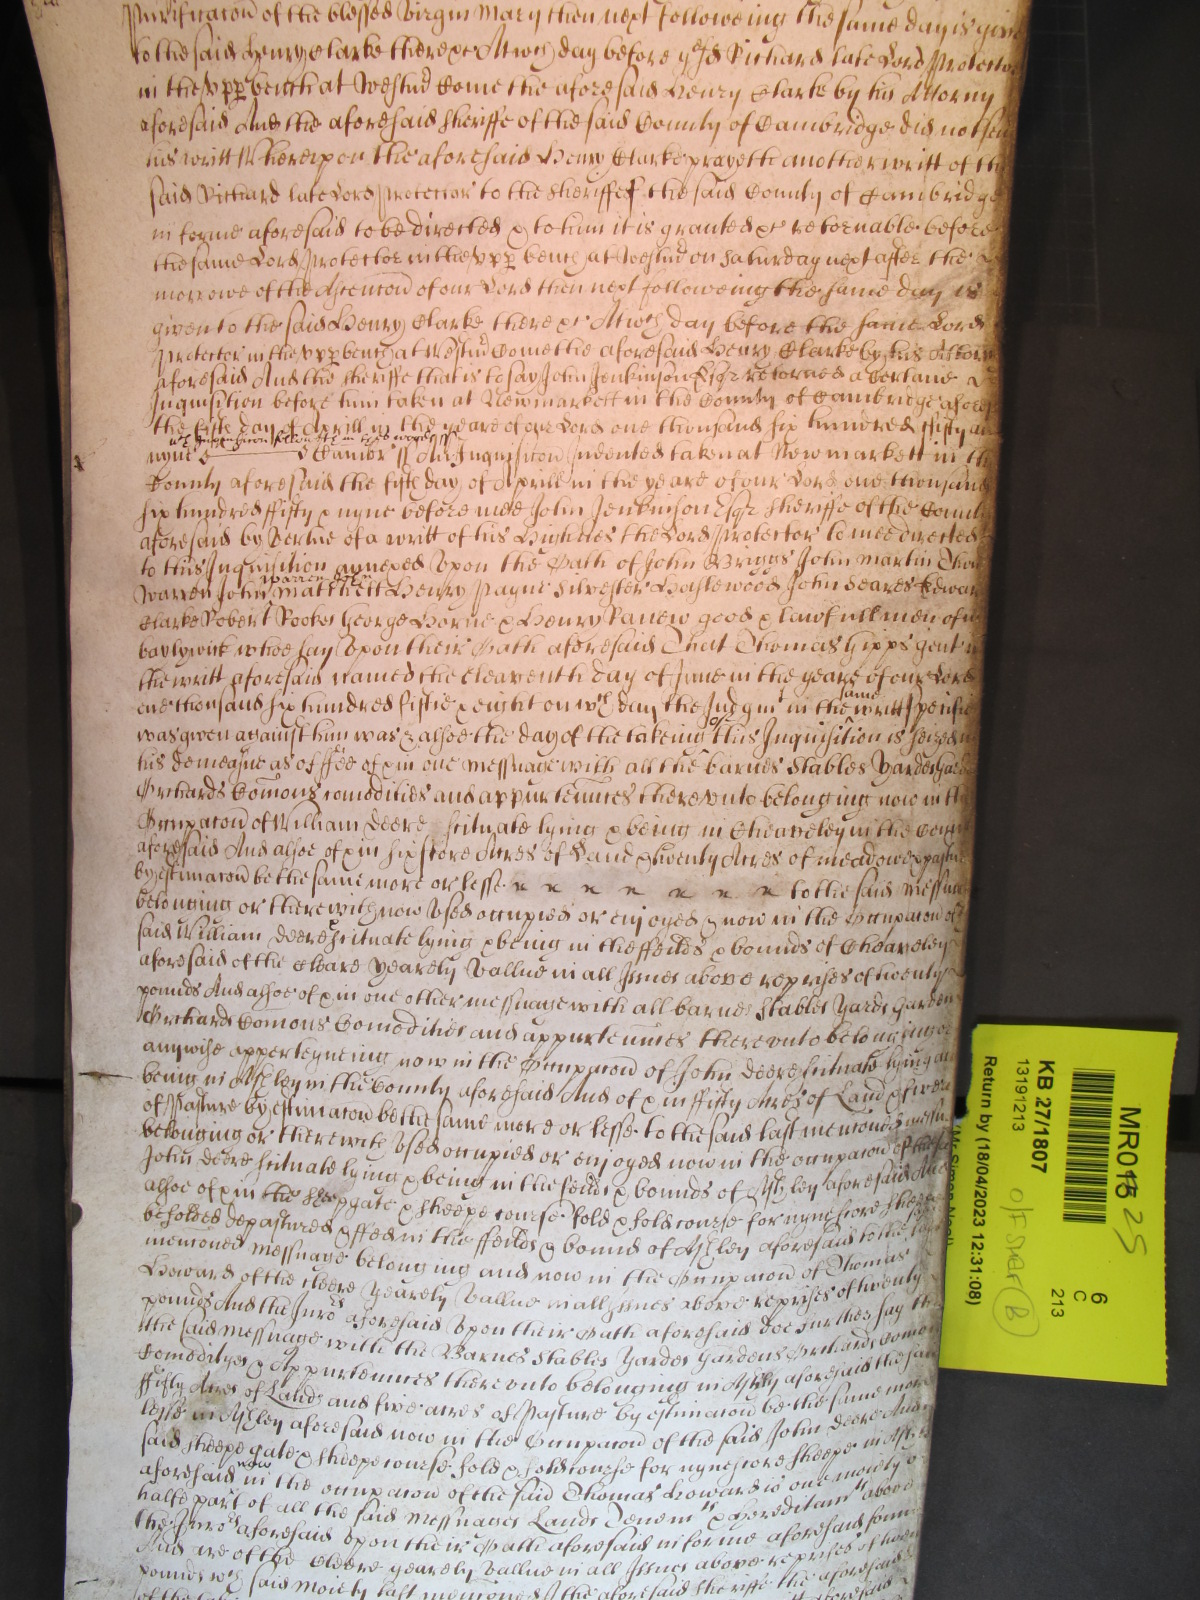 Purificacōn of the blessed Virgin Mary then next followeing the same day is given
to the said Henry Clarke there &c At wch day before ye sd Richard late Lord Protector
in the Vpp bench at Westmr Came the aforesaid Henry Clarke by his Attorny
aforesaid And the aforesaid Sheriffe of the said County of Cambridge did not send
his writt Wherevpon the aforesaid Henry Clarke prayeth another writt of the
said Richard late Lord Protector to the Sheriffe of the said County of Cambridge
in forme aforesaid to be directed & to him it is granted &c retornable before
the same Lord Protector in the Vpp bench at Westmr on Saturday next after the
morrowe of the Ascencōn of our Lord then next followeing the same day is
given to the said Henry Clarke there &c At wch day before the same Lord
Protector in the Vpp bench at Westmr Come the aforesaid Henry Clarke by his Attorny
aforesaid And the Sheriffe that is to say John Jenkinson Esqr retorned a Certaine
Inquisition before him taken at Newmarkett in the County of Cambridge afores
the fifth day of Aprill in the yeare of our Lord one thousand six hundred fifty an
wch Inquisicon followeth in these words
nyne Cambr ss An Inquisicōn Indented taken at Newmarkett in the
County aforesaid the fifth day of Aprill in the yeare of our Lord one thousand
six hundred ffifty & nyne before mee John Jenkinson Esqr Sheriffe of the County
aforesaid by Vertue of a writt of his Highnes the Lord Protector to mee directed
to this Inquisition annexed Vpon the Oath of John Briggs John Martin Tho
Warren John Matchett Henry Payne Silvester Haslewood John Seares Edwar
Clarke Robert Rookes George Horne & Henry Ranew good & lawfull men of my
baylywick whoe say Vpon their Oath aforesaid That Thomas Gipps gent in
the writt aforesaid named the Eleaventh day of June in the yeare of our Lord
same
one thousand six hundred fiftie & eight on wch day the Judgmt in the writt specifie
was given against him was & alsoe the day of the takeing of this Inquisition is seized in
his demeasne as of ffee of & in one messuage with all the barnes Stables Yardes Gard
Orchards Comons comodities and appurtennces therevnto belonging now in the
Occupacōn of William Deere scituate lying & being in Cheaveley in the County
aforesaid And alsoe of & in six score Acres of Land & twenty Acres of meadowe & pasture
by estimacōn be the same more or lesse to the said Messuage
belonging or therewith now Vsed occupied or enjoyed & now in the Occupacōn of the
said William Deere scituate lying & being in the ffeilds & bounds of Cheaveley
aforesaid of the Cleare Yearely Vallue in all Issues above reprises of twenty
pounds And alsoe of & in one other messuage with all barnes Stables Yards Gardens
Orchards Comons Comodities and appurtennces therevnto belonging or in
anywise apperteyneing now in the Occupacōn of John Deere scituate lying and
being in Ashley in the County aforesaid And of & in ffifty Acres of Land & five a
of Pasture by estimacōn be the same more or lesse to the said last mencōned messu
belonging or therewith Vsed occupied or enjoyed now in the occupacōn of the said
John Deere scituate lying & being in the feilds & bounds of Ashley aforesaid And
alsoe of & in the sheepgate & sheepe course fold & fold course for nyne score sheepe
be folded depastured & ffed in the ffeilds & bounds of Ashley aforesaid to the last
mencōned messuage belonging and now in the Occupacōn of Thomas
Howard of the cleere Yearely Vallue in all Issues above reprises of twenty
pounds And the Jurors aforesaid Vpon their Oath aforesaid doe further say that
the said messuage with the Barnes Stables Yardes Gardens Orchards Comons
Comodityes & Appurtennces therevnto belonging in Ashley aforesaid the said
ffifty Acres of Lands and five acres of Pasture by estimacōn be the same more
lesse in Ashley aforesaid now in the Occupacōn of the said John Deere And
said sheepe gate & sheepe course fold & fold course for nyne score sheepe in Ashley
now
aforesaid in the occupacōn of the said Thomas Howard is one moiety or
halfe part of all the said Messuages Lands Tenemts & hereditamts above
the Jurors aforesaid Vpon their Oath aforesaid in forme aforesaid found
And are of the cleere yearely Vallue in all Issues above reprises of twenty
pounds wch said moiety last mencōned I the aforesaid Sheriffe the aforesaid
MR01 25
6
C
213
KB 27/1807
13191213
O/F Shelf B
Return by (18/04/2023 12:31:08)